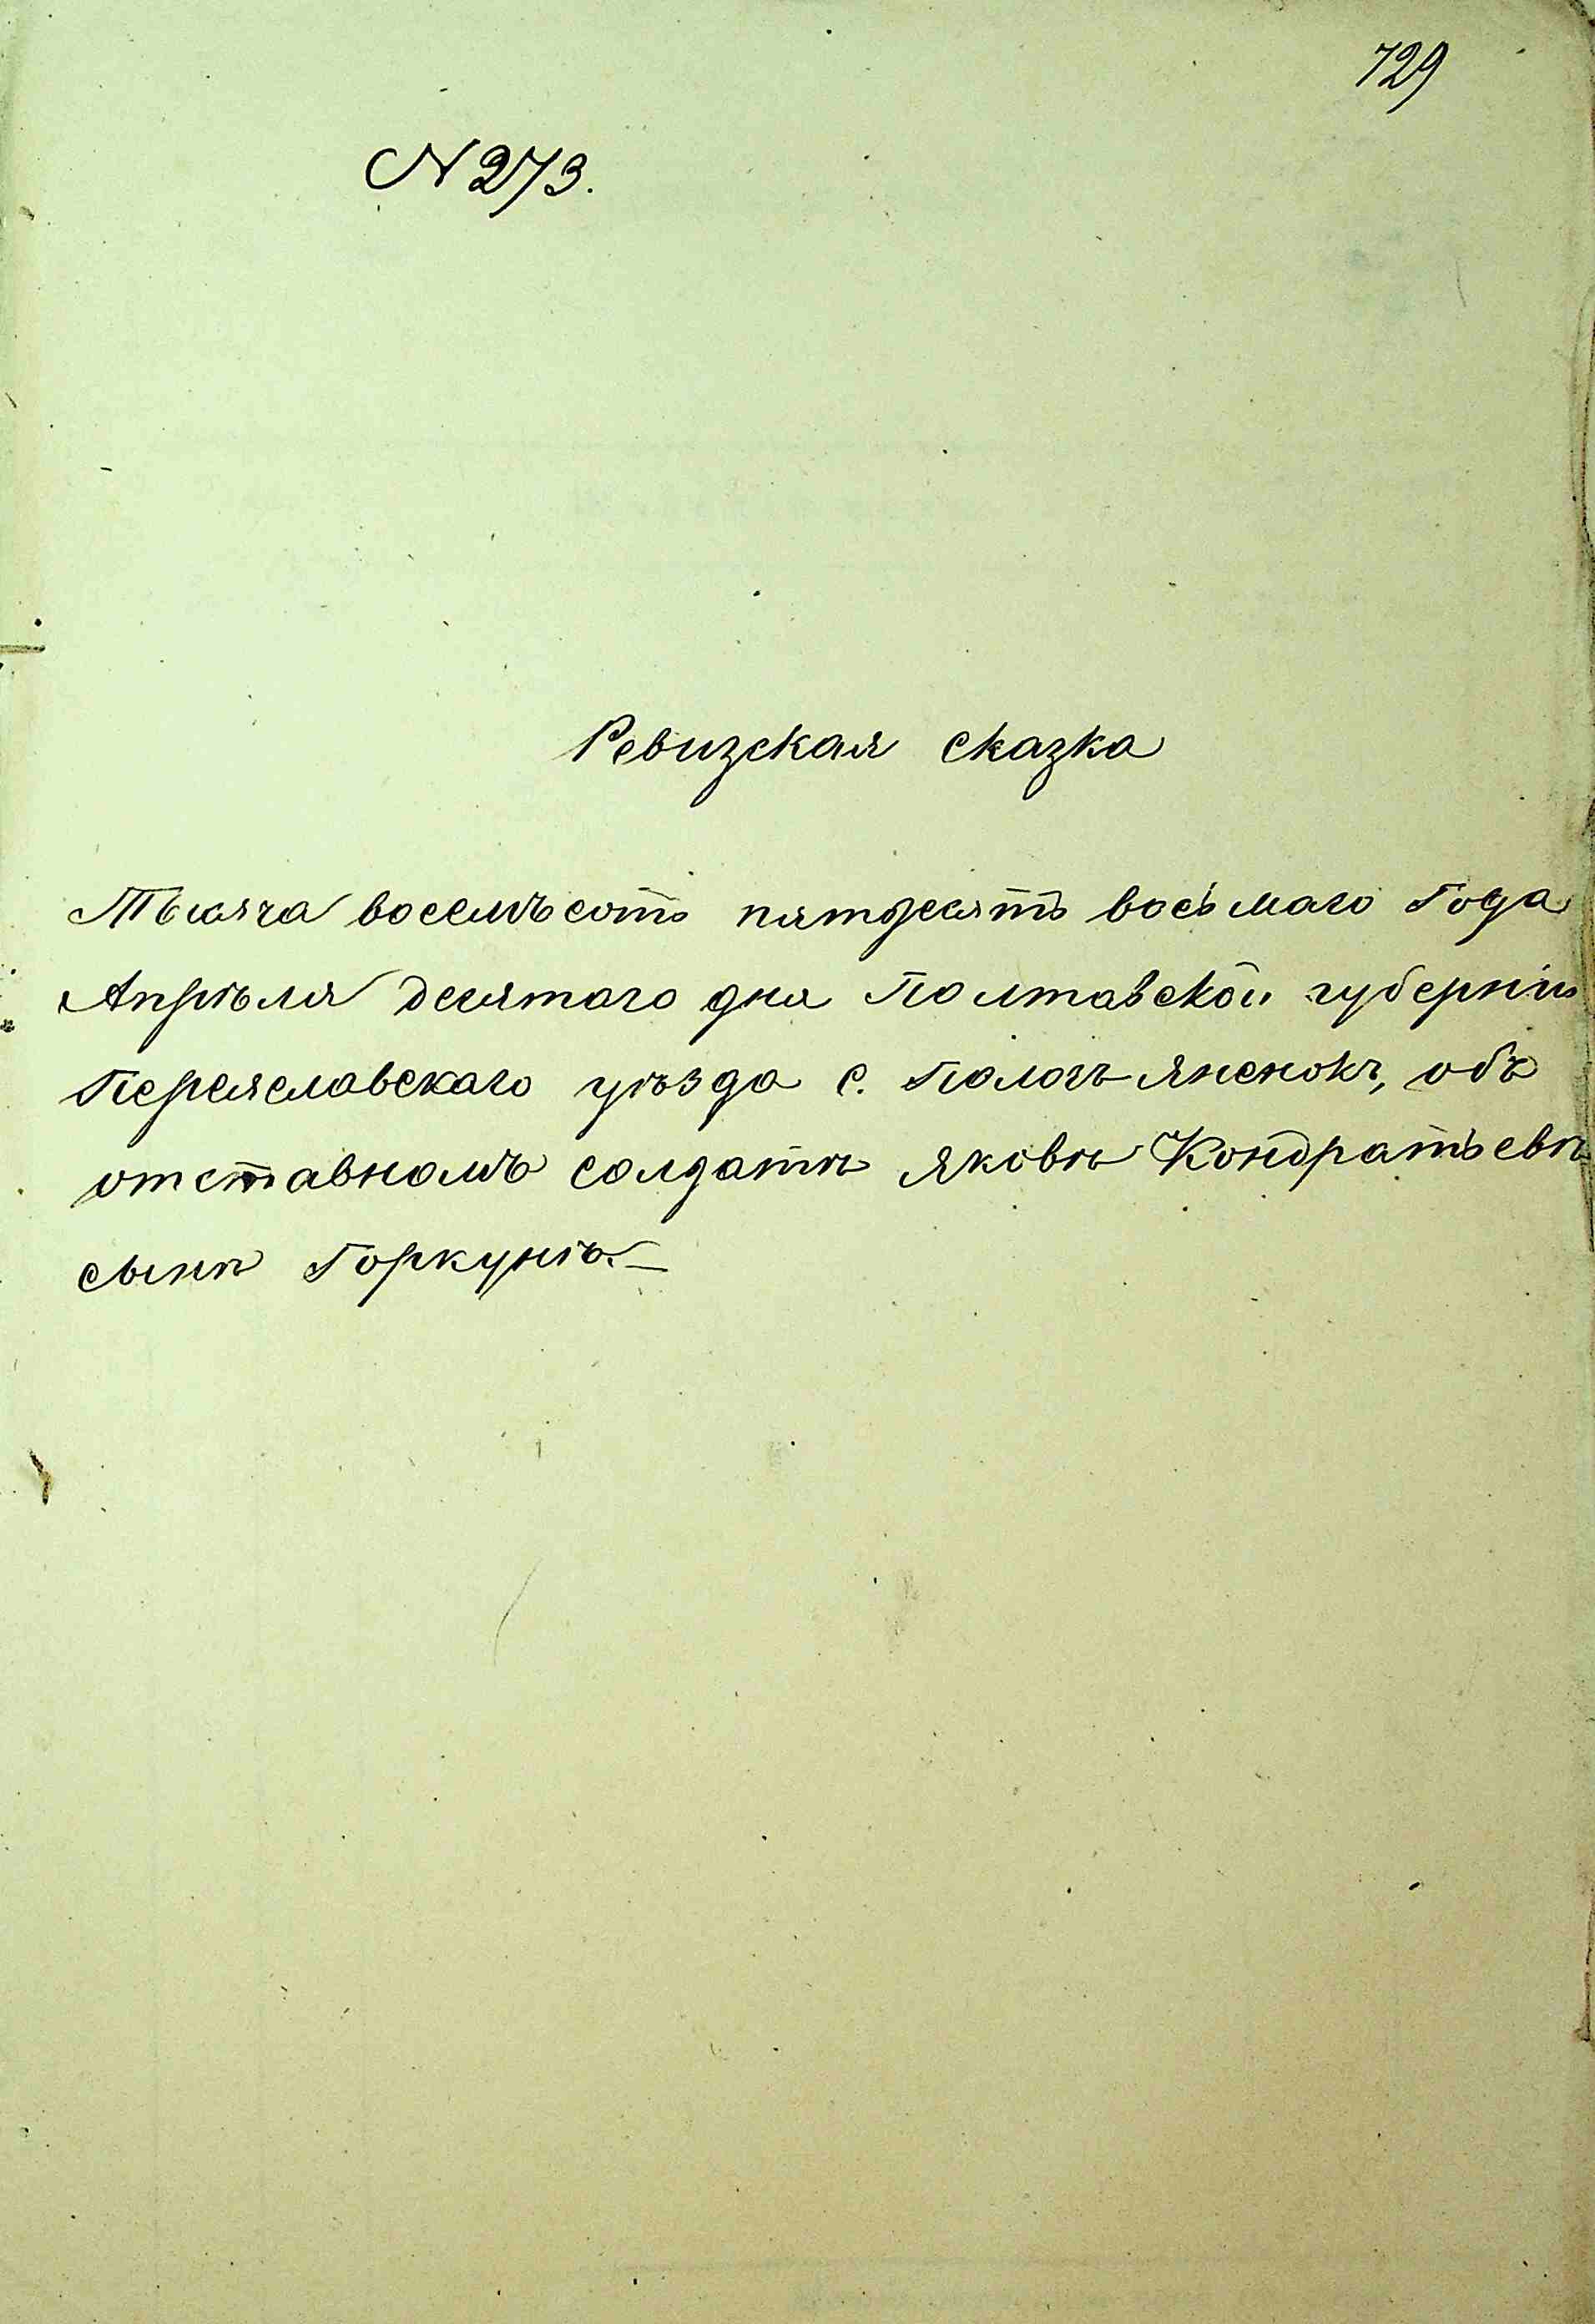 729
N 273.
Ревизская сказка
Тысяча восемъсотъ пятдесятъ восьмаго Года
Апрѣля десятаго дня Полтавской губерніи
Переяславскаго уѣзда с. Пологъ Яненокъ, объ
отставномъ солдатѣ Яковѣ Кондратьевѣ
сынѣ Горкунѣ.—